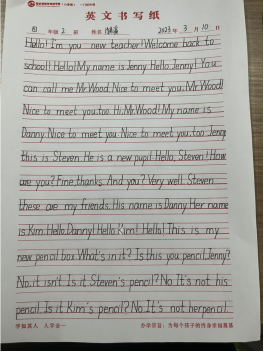 英文书写纸
四 年级 2 班 2023 年 3 月 10 日
Hello! I'm you new teacher! Welcome back to
school! Hello! My name is Jenny. Hello, Jenny! You
can call me Mr. Wood. Nice to meet you, Mr. Wood!
Nice to meet you, too. Hi, Mr. Wood! My name is
Danny. Nice to meet you. Nice to meet you, too. Jenny
this is Steven. He is a new pupil. Hello, Steven! How
are you? Fine, thanks. And you? Very well. Steven
these are my friends. His name is Danny. Her name
is Kim. Hello, Danny! Hello, Kim! Hello! This is my
new pencil box. What's in it? Is this you pencil, Jenny?
No, it isn't. Is it Steven's pencil? No. It's not his
pencil. Is it Kim's pencil? No. It's not her pencil.
字如其人 人字合一 办学宗旨：为每个孩子的终身学习奠基